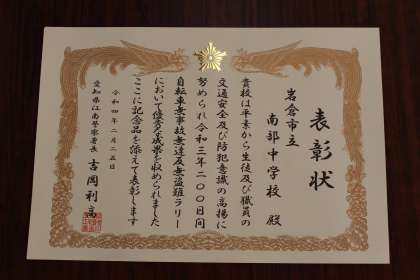 表彰状
岩倉市立
南部中学校 殿
貴校は平素から生徒及び職員の
交通安全及び防犯意識の高揚に
努められ令和三年二〇〇日間
自転車無事故無違反無盗難ラリー
において優秀な成果を収められました
ここに記念品を添えて表彰します
令和四年二月二五日
愛知県江南警察署長 吉岡利高